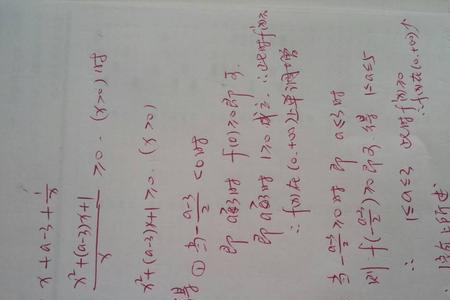 x + a-3 + 1/x
x²+(a-3)x+1 / x ≥0. (x>0) 时
x²+(a-3)x+1≥0. (x>0)
得 ① 当 -a-3/2 <0时
即 a≥3时 f(0)≥0即可.
即 a≥3时 1≥0 成立. ∴此时f(x)≥0
∴ f(x)在(0,+∞)上单调增
当 -a-3/2≥0时 即 a≤3时
则 f(-a-3/2)≥0即可 得 1≤a≤5
∴ 1≤a≤3 此时f(x)≥0
∴f(x)在(0,+∞)个
综上所述